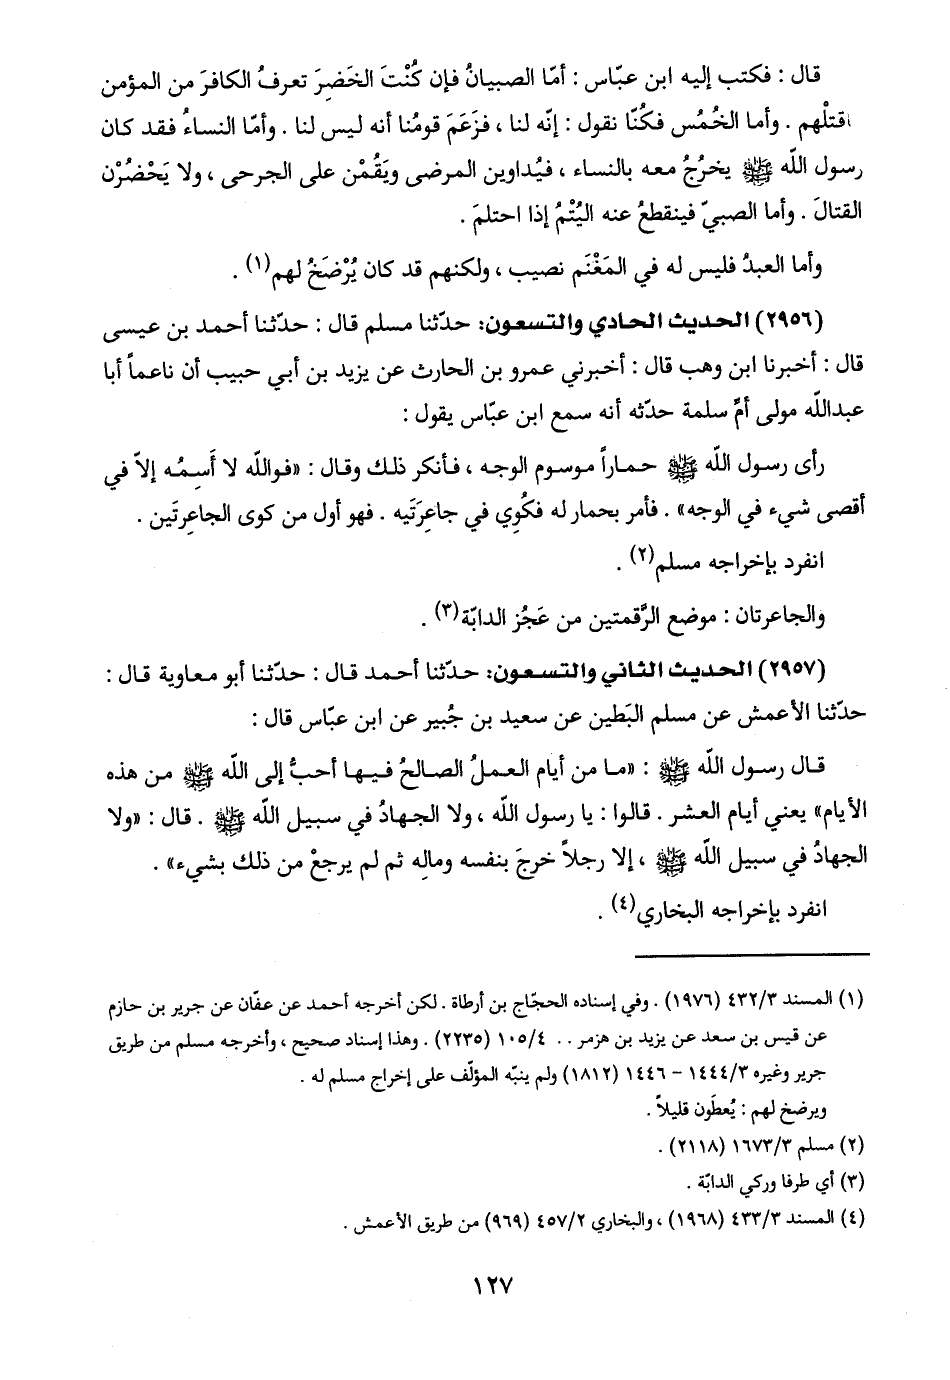 قال : فكتب إليه ابن عبّاس : أمّا الصبيانُ فإن كُنْتَ الخَضِرَ تعرفُ الكافرَ من المؤمن
اقتلْهم . وأما الخُمُس فكُنّا نقول : إنّه لنا ، فزَعَمَ قومُنا أنه ليس لنا . وأمّا النساءُ فقد كان
رسول اللّه ﷺ يخرُجُ معه بالنساء ، فيُداوين المرضى ويَقُمْن على الجرحى ، ولا يَحْضُرْن
القتالَ . وأما الصبيّ فينقطعُ عنه اليُتْمُ إذا احتلمَ .
وأما العبدُ فليس له في المَغْنَم نصيب ، ولكنهم قد كان يُرْضَخُ لهم(١) .
(٢٩٥٦) الحديث الحادي والتسعون: حدّثنا مسلم قال : حدّثنا أحمد بن عيسى
قال : أخبرنا ابن وهب قال : أخبرني عمرو بن الحارث عن يزيد بن أبي حبيب أن ناعماً أبا
عبداللّه مولى أمّ سلمة حدّثه أنه سمع ابن عبّاس يقول :
رأى رسول اللّه ﷺ حماراً موسوم الوجه ، فأنكر ذلك وقال : «فواللّه لا أَسِمُه إلاّ في
أقصى شيء في الوجه» . فأمر بحمار له فكُوِي في جاعِرَتَيه . فهو أول من كوى الجاعِرتَين .
انفرد بإخراجه مسلم(٢) .
والجاعرتان : موضع الرَّقمتين من عَجُز الدابّة(٣) .
(٢٩٥٧) الحديث الثاني والتسعون: حدّثنا أحمد قال : حدّثنا أبو معاوية قال :
حدّثنا الأعمش عن مسلم البَطين عن سعيد بن جُبير عن ابن عبّاس قال :
قال رسول اللّه ﷺ : «ما من أيام العملُ الصالحُ فيها أحبُّ إلى اللّه ﷺ من هذه
الأيام» يعني أيام العشر . قالوا : يا رسول اللّه ، ولا الجهادُ في سبيل اللّه ﷺ . قال : «ولا
الجهادُ في سبيل اللّه ﷺ ، إلا رجلاً خرجَ بنفسه ومالِه ثم لم يرجعْ من ذلك بشيء» .
انفرد بإخراجه البخاري(٤) .
(١) المسند ٤٣٢/٣ (١٩٧٦) . وفي إسناده الحجّاج بن أرطاة . لكن أخرجه أحمد عن عفّان عن جرير بن حازم
عن قيس بن سعد عن يزيد بن هزمر .. ١٠٥/٤ (٢٢٣٥) . وهذا إسناد صحيح ، وأخرجه مسلم من طريق
جرير وغيره ١٤٤٤/٣ - ١٤٤٦ (١٨١٢) ولم ينبّه المؤلّف على إخراج مسلم له .
ويرضخ لهم : يُعطَون قليلاً .
(٢) مسلم ١٦٧٣/٣ (٢١١٨) .
(٣) أي طرفا وركي الدابّة .
(٤) المسند ٤٣٣/٣ (١٩٦٨) ، والبخاري ٤٥٧/٢ (٩٦٩) من طريق الأعمش .
١٢٧